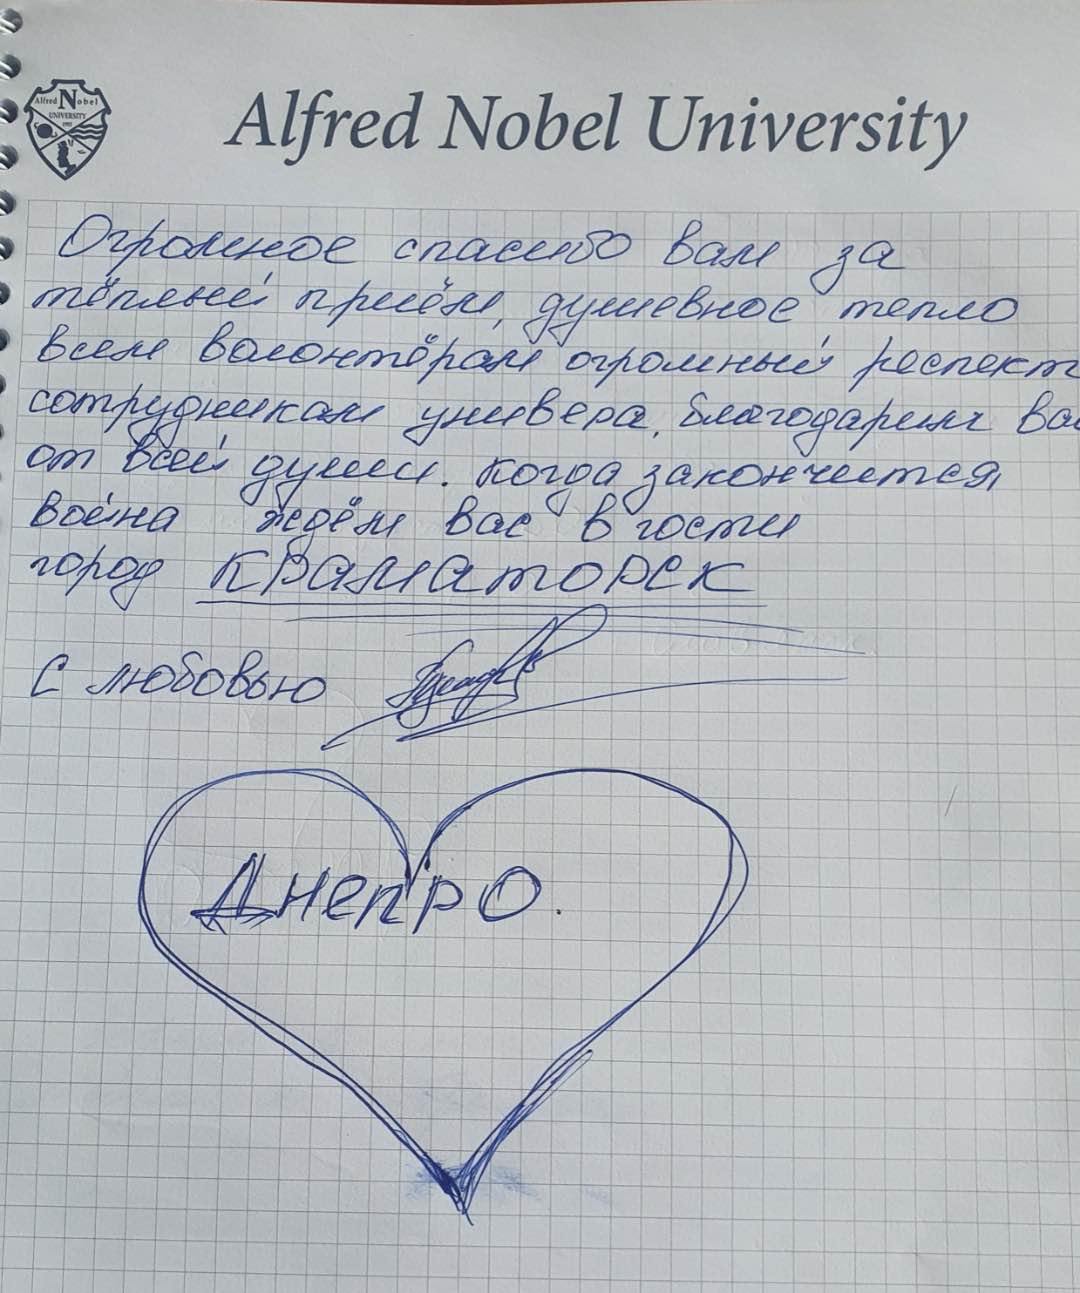 Alfred Nobel
UNIVERSITY
1993
Alfred Nobel University
Огромное спасибо вам за
тёплый приём, душевное тепло
всем волонтёрам огромный респект
сотрудникам универа, благодарим вас
от всей души. Когда закончится
война ждём вас в гости
город КРАМАТОРСК
С любовью
Днепро.